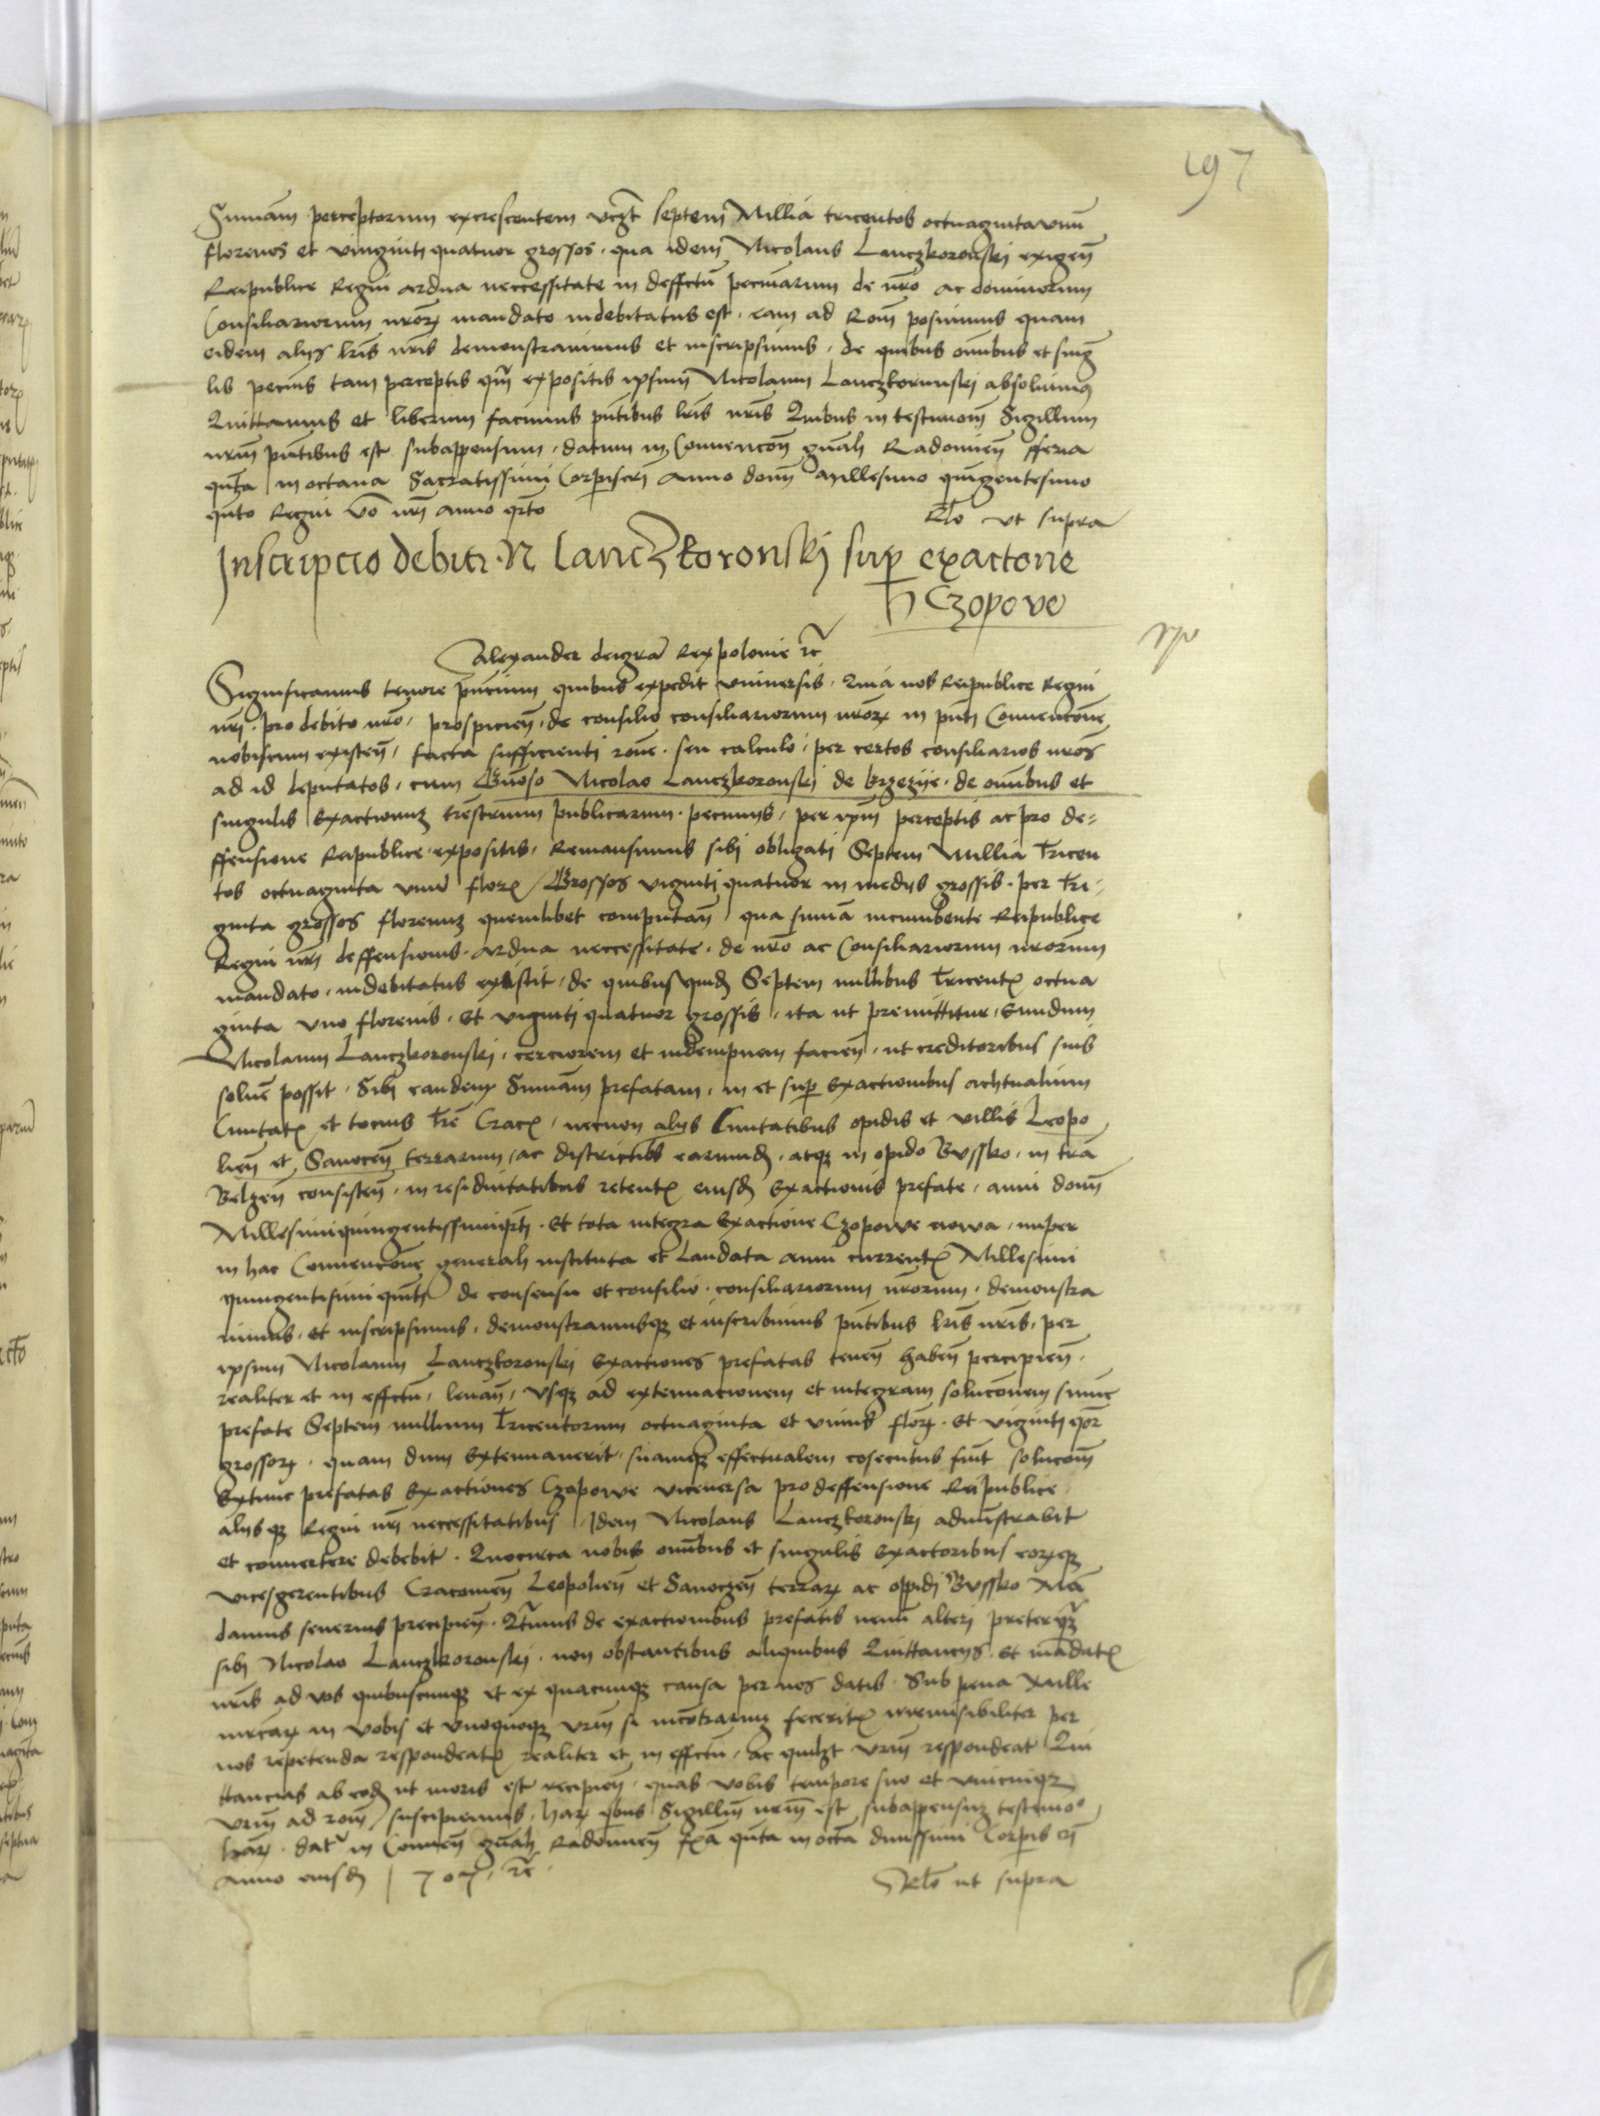 197
Summam perceptorum excrescentem vczt septem Millia tricentos octuaginta vnu
florenos et viuginti quatuor grossos. qua idem Nicolaus Lanczkoronski exigen
Reipublice Regni ardua neccessitate in deffectu pecuniarum de nro ac dominorum
Consiliariorum nrorum mandato indebitatus est. eam ad Rom posuimus quam
eidem alys lris nris demonstrauimus et inscripsimus. de quibus omibus et sing
lis pecuis tam perceptis qm expositis ipsum Nicolaum Lanczkorunski absoluimus
Quittamus et liberum facimus pntibus lris nris Quibus in testimom Sigillum
nrm pntibus est subappensum. datum in Conuencon gnali Radomien fferia
qnta in octaua Sacratissimi Corpiscri Anno domi Millesimo quingentesimo
qnto Regni vo nri anno qrto
Rlo vt supra
Inscripcio debiti. N Lanczkoronski sup exactone
h Czopove
Alexander deigra Rex polonie rc
Significamus tenore pncium quibus expedit vniuersis. Quia nos Reipublice Regni
nri. pro debito nro. prospicien. de consilio consiliariorum nrorum in pnti Conuencone
nobiscum existen, facta sufficienti rone. seu calculo. per certos consiliarios nros
ad id deputatos, cum Gnoso Nicolao Lanczkoronski de brzezije. de omibus et
singulis exactionum trestrium publicarum. pecuniis, per ipm perceptis ac pro de=
ffensione Reipublice. expositis. Remansimus sibi obligati Septem Millia Tricen
tos octuaginta vnu flor Grossos viginti quatuor in medys grossis. per Tri-
ginta grossos florenum quemlibet computan qua suma incumbente Reipublice
Regni nri deffensionis. ardua neccessitate. de nro ac Consiliariorum nrorum
mandato. indebitatus existit, de quibus quid Septem millibus Tricent octua
ginta vno florenis. Et viginti quatuor grossis, ita ut premittitur, Eundum
Nicolaum Lanczkoronski, cerciorem et indempnem facien, ut creditoribus suis
solue possit. Sibi eandem Sumam prefatam, in et sup Exactionibus achtualium
Ciuitat et tocius Tre Crac, necnon alys Ciuitatibus opidis et villis Leopo
lien et Sanocen terrarum, ac districtibs earund, atq in opido Bussko, in tra
Belzen consisten, in residuitatibus retent eiusd Exactionis prefate, anni domi
Millesimiquingentissimiqrti. Et tota integra Exactione Czopowe nowa, nuper
in hac Conuencone generali instituta et Laudata anni current Millesimi
quingentisimi quinti de consensu et consilio. consiliariorum nrorum. demonstra
uimus. et inscripsimus, demonstramusq et inscribimus pntibus lris nris, per
ipsum Nicolaum Lanczkoronski Exactiones prefatas tenen haben percipien.
realiter et in effectu, leuan, usq ad extenuacionem et integram soluconem sume
prefate Septem millium Tricentorum octuaginta et vnius flor. Et viginti qor
grossor. quam dum Extenuauerit. suamq effectualem cosecutus fuit solucom
Extunc prefatas Exactiones Czopowe viceuersa pro deffensione Reipublice.
alysq Regni nri neccessitatibus. Idem Nicolaus Lanczkoronski adminstrabit
et conuertere debebit. Quocirca vobis omibus et singulis Exactoribus eorumq
vicesgerentibus Cracouien Leopolien et Sanoczen terrar ac oppidi Bussko Man
damus seuerius precipien. Qtinus de exactionibus prefatis nemi alteri preterqm
sibi Nicolao Lanczkoronski. non obstantibus aliquibus Quittancys. et mandat
nris ad vos quibuscunq et ex quacunq causa per nos datis. Sub pena Mille
mrcar in vobis et vnoquoq vrm si incontrarium fecerit irremisibiliter per
nos repetenda respondeat realiter et in effectu, ac quilzt vrm respondeat Qui
ttancias ab eod ut moris est recipien. quas vobis tempore suo et vnicuiq
vrm ad rom suscipiemus, har qbus Sigillm nrm est subappensum testimo
har. dat in Conuen gnali Radomien fxa qnta in octa diuissimi Corpis cri
Anno eiusd
Rlo ut supra